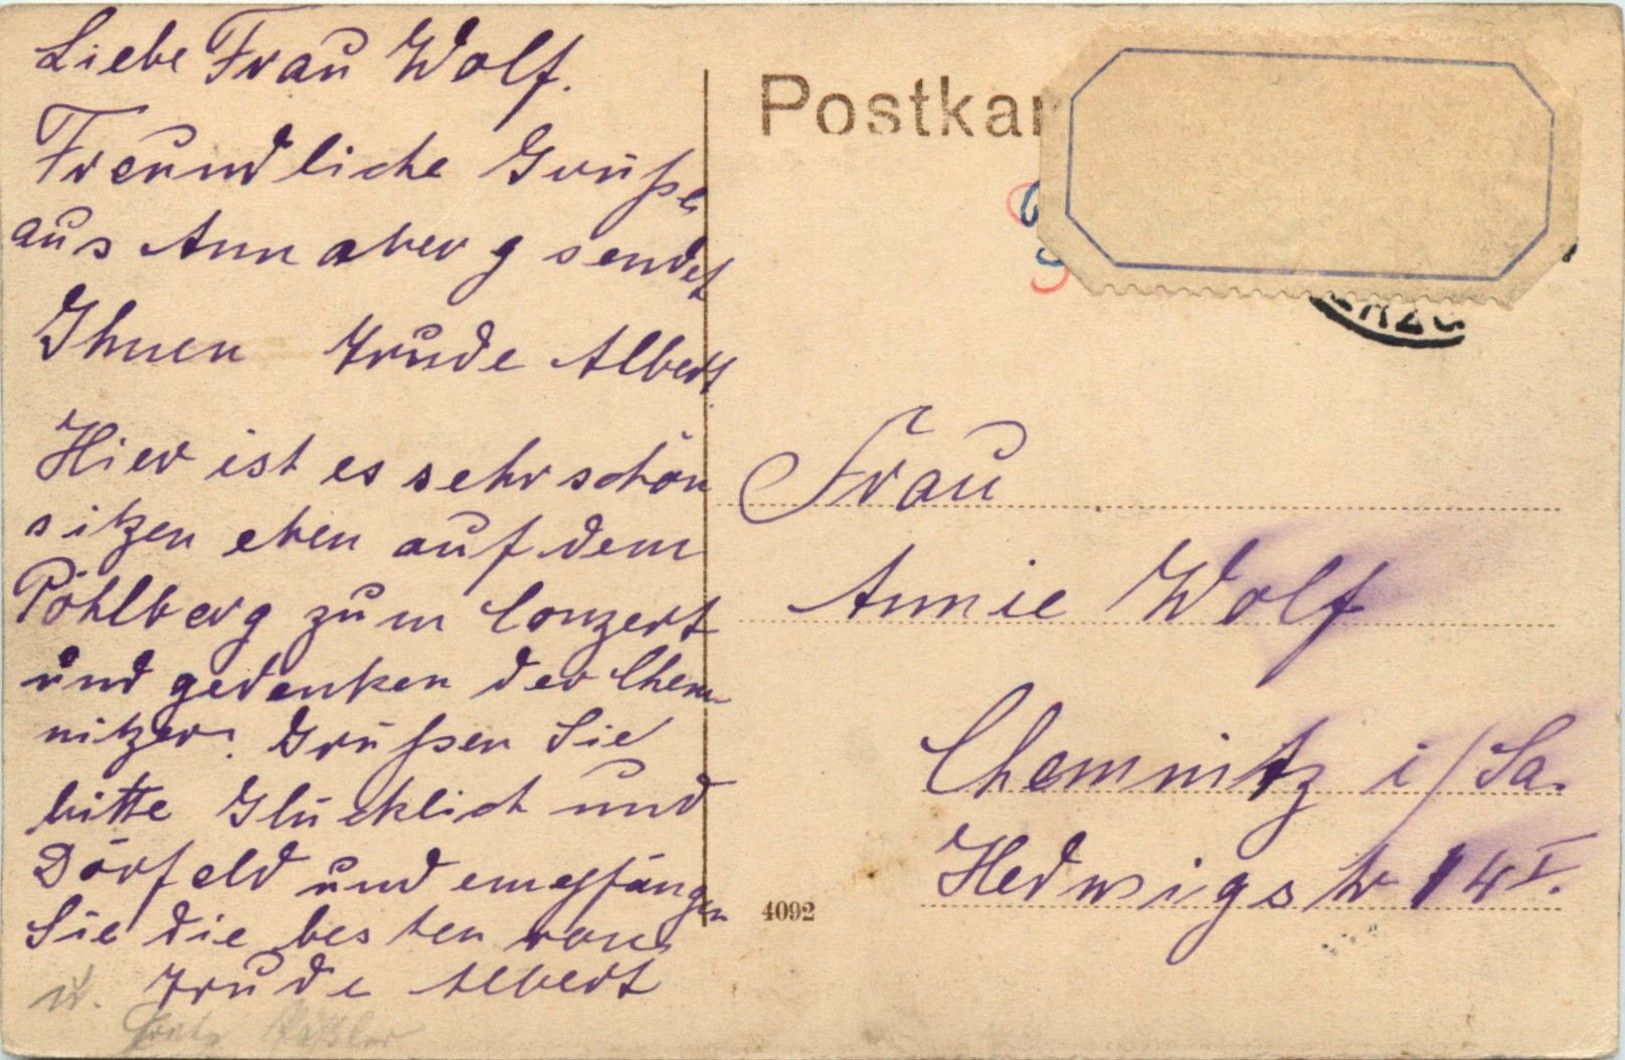 Liebe Frau Wolf.
Freundliche Grüße
aus Annaberg sendet
Ihnen Trude Albert.
Hier ist es sehr schön
sitzen eben auf dem
Pöhlberg zum Conzert
und gedenken der Chem-
nitzer. Grüßen Sie
bitte Glücklich und
Dörfeld und empfangen
Sie die besten von
Trude Albert
u.
Postkar
Frau
Annie Wolf
Chemnitz i/Sa.
Hedwigstr 14 I.
4092